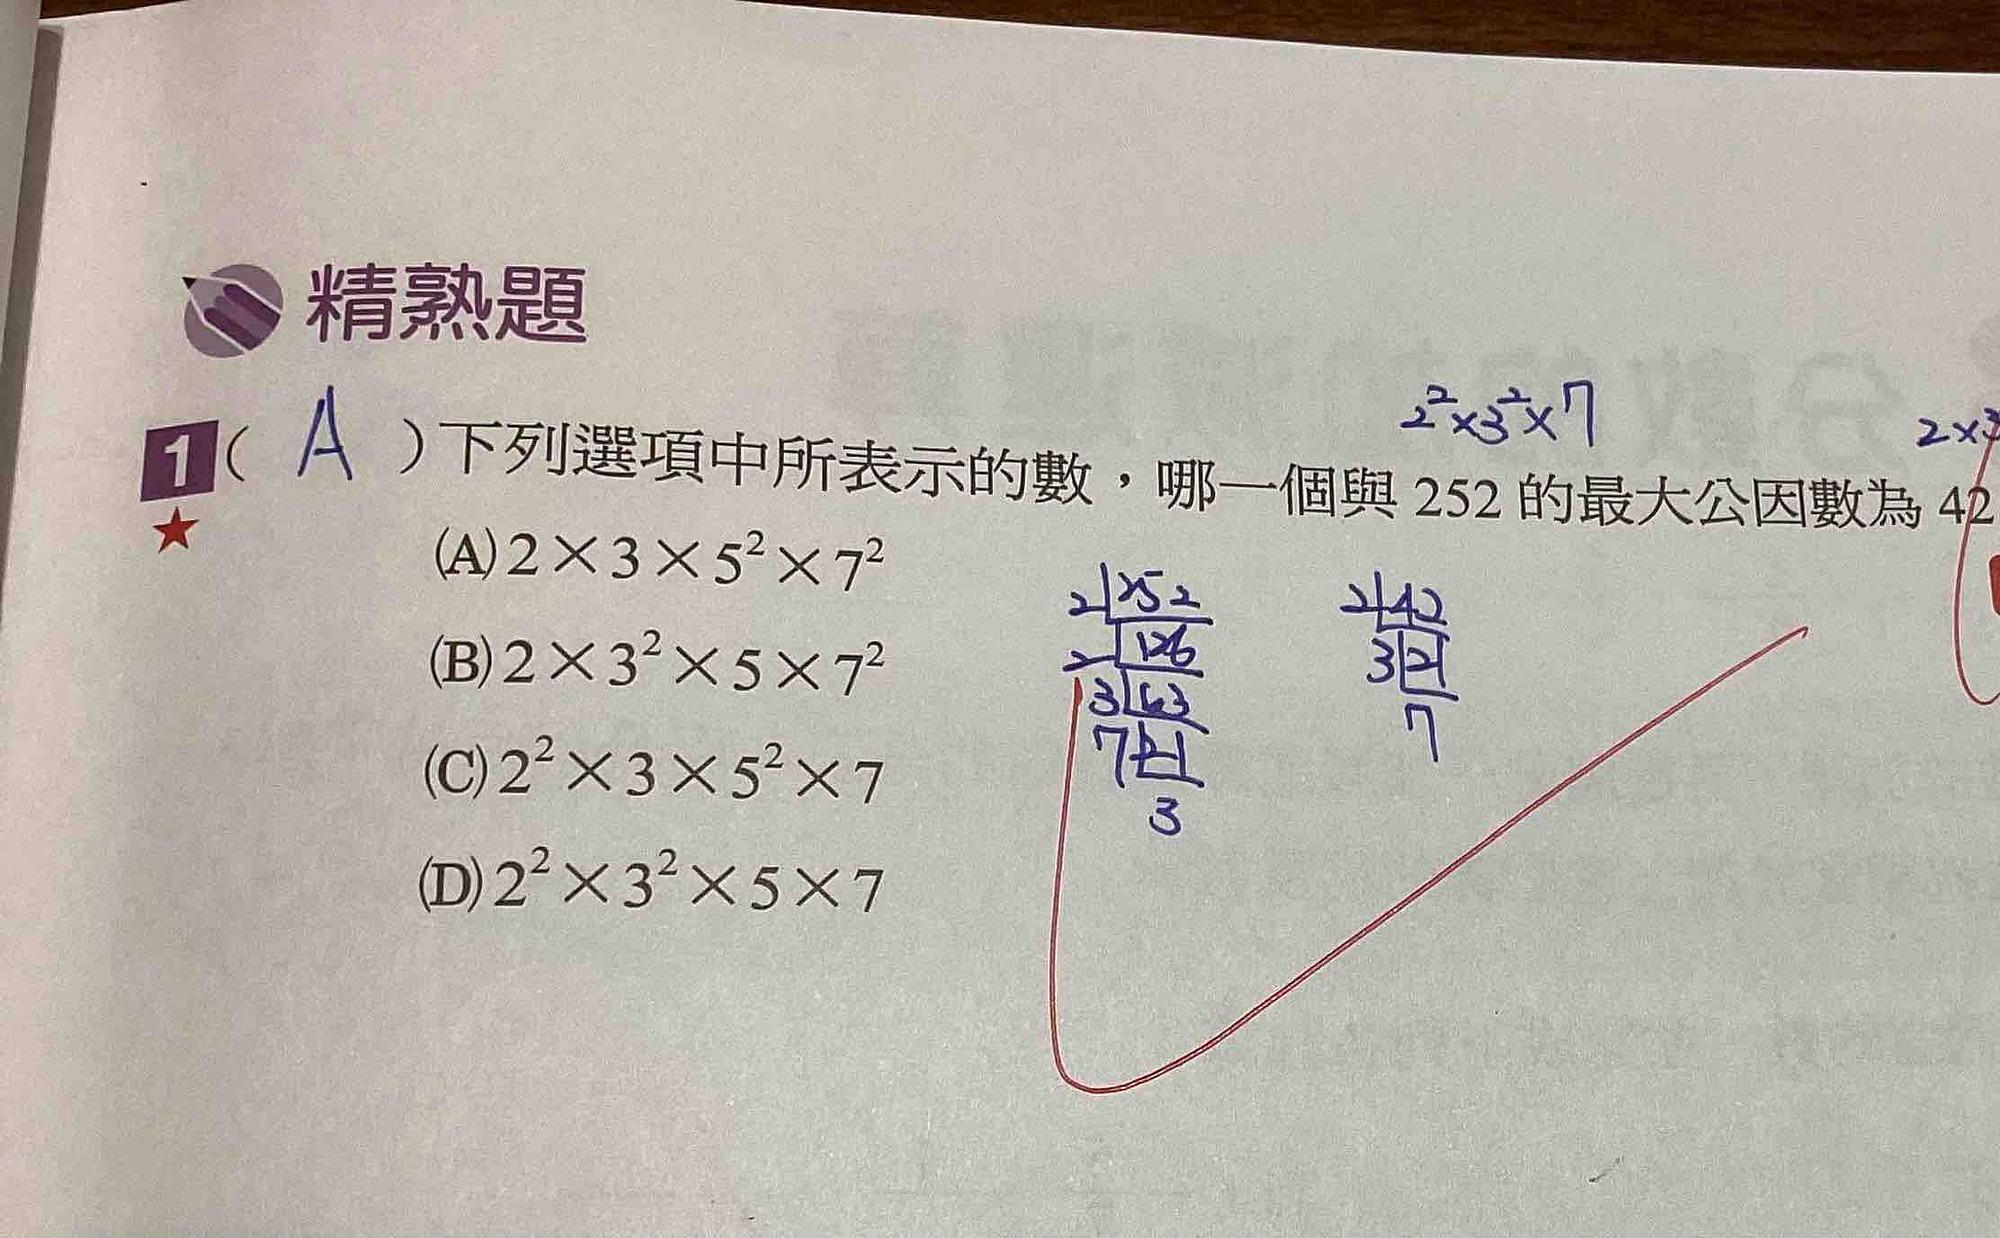 精熟題
2²×3²×7
2×3
1 ( A ) 下列選項中所表示的數，哪一個與 252 的最大公因數為 42
(A) 2×3×5²×7²
(B) 2×3²×5×7²
(C) 2²×3×5²×7
(D) 2²×3²×5×7
2 252
2 126
3 63
7 21
3
2 42
3 21
7